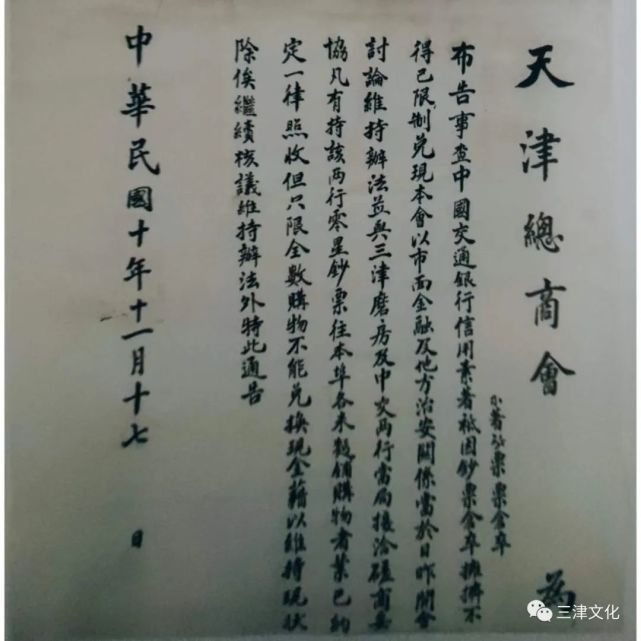 天津總商會 為
布告事查中國交通銀行信用素著祗因鈔票倉卒擁擠不
得已限制兌現本會以市面金融及地方治安關係當於日昨開會
討論維持辦法並與三津磨房及中交兩行當局接洽磋商妥
協凡有持該兩行零星鈔票往本埠各米麵鋪購物者業已約
定一律照收但只限全數購物不能兌換現金藉以維持現狀
除俟繼續核議維持辦法外特此通告
中華民國十年十一月十七日
三津文化